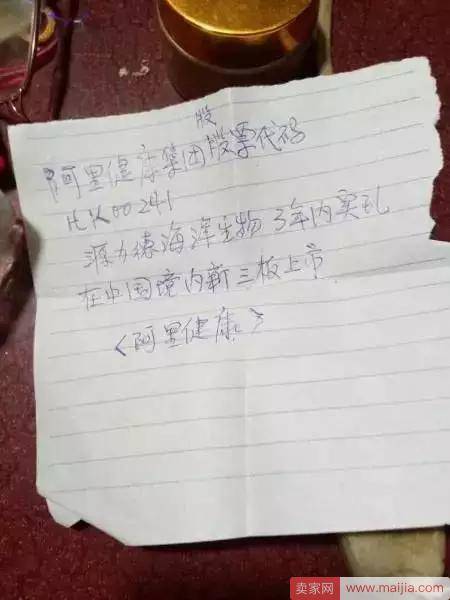 股
阿里健康集团股票代码
HK00241
源力德海洋生物 3年内实现
在中国境内新三板上市
<阿里健康>
卖家网
www.maijia.com